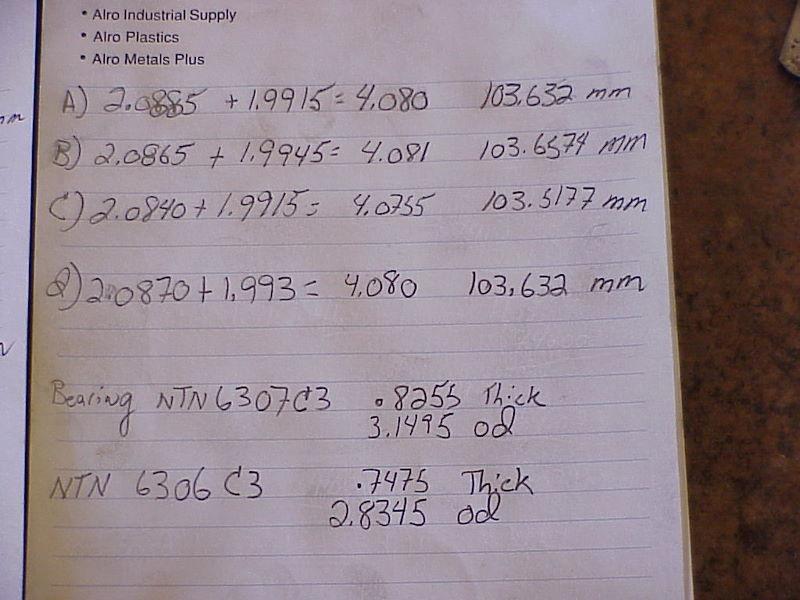 • Alro Industrial Supply
• Alro Plastics
• Alro Metals Plus
A) 2.0885 + 1.9915 = 4.080 103.632 mm
B) 2.0865 + 1.9945 = 4.081 103.6574 mm
C) 2.0840 + 1.9915 = 4.0755 103.5177 mm
D) 2.0870 + 1.993 = 4.080 103.632 mm
Bearing NTN 6307 C3 .8255 Thick
3.1495 od
NTN 6306 C3 .7475 Thick
2.8345 od